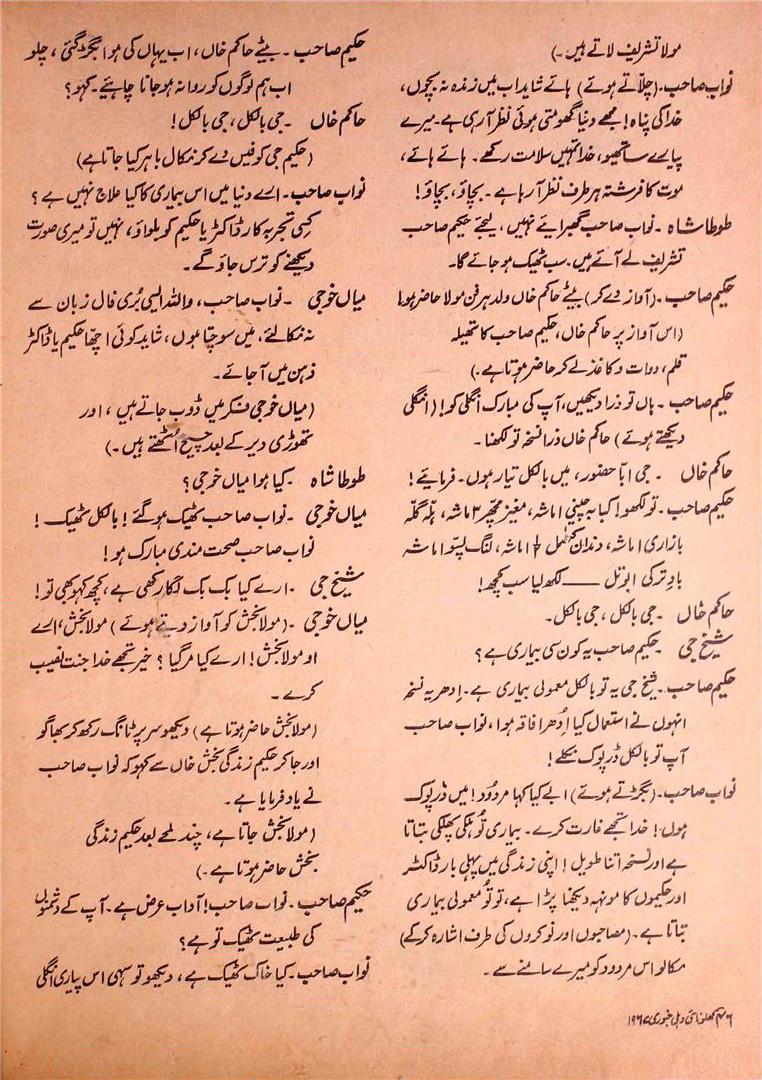 مولا تشریف لاتے ہیں۔)
نواب صاحب۔ (چلّاتے ہوئے) ہائے شاید اب میں زندہ نہ بچوں،
خدا کی پناہ! مجھے دنیا گھومتی ہوئی نظر آ رہی ہے۔ میرے
پیارے ساتھیو، خدا تمہیں سلامت رکھے۔ ہائے ہائے،
موت کا فرشتہ ہر طرف نظر آ رہا ہے۔ بچاؤ، بچاؤ!
طوطا شاہ ۔ نواب صاحب گھبرائیے نہیں، لیجئے حکیم صاحب
تشریف لے آئے ہیں۔ سب ٹھیک ہو جائے گا۔
حکیم صاحب ۔ (آواز دے کر) بیٹے حاکم خاں ولد ہر فن مولا حاضر ہو!
(اس آواز پر حاکم خاں، حکیم صاحب کا تھیلہ
قلم، دوات و کاغذ لے کر حاضر ہوتا ہے۔)
حکیم صاحب ۔ ہاں تو ذرا دیکھیں، آپ کی مبارک انگلی کو! (انگلی
دیکھتے ہوئے) حاکم خاں ذرا نسخہ تو لکھنا۔
حاکم خاں ۔ جی ابّا حضور، میں بالکل تیار ہوں۔ فرمائیے!
حکیم صاحب ۔ تو لکھو! کبابہ چینی ۱ ماشہ، مغز مچھر ۳ ماشہ، ہلہ گلّہ
بازاری ۱ ماشہ، دندان کھٹمل ۱/۲ ماشہ، لنگ پسّو ۱ ماشہ
بادِ ترکی ۱ بوتل —— لکھ لیا سب کچھ!
حاکم خاں ۔ جی بالکل، جی بالکل۔
شیخ جی ۔ حکیم صاحب یہ کون سی بیماری ہے؟
حکیم صاحب ۔ شیخ جی یہ تو بالکل معمولی بیماری ہے۔ اِدھر یہ نسخہ
انہوں نے استعمال کیا اُدھر افاقہ ہوا، نواب صاحب
آپ تو بالکل ڈرپوک نکلے!
نواب صاحب ۔ (بگڑتے ہوئے) ابے کیا کہا مردود! میں ڈرپوک
ہوں! خدا تجھے غارت کرے۔ بیماری تو ہلکی پھلکی بتاتا
ہے اور نسخہ اتنا طویل! اپنی زندگی میں پہلی بار ڈاکٹر
اور حکیموں کا مونہہ دیکھنا پڑا ہے، تو تُو معمولی بیماری
بتاتا ہے۔ (مصاحبوں اور نوکروں کی طرف اشارہ کر کے)
نکالو اس مردود کو میرے سامنے سے۔
حکیم صاحب ۔ بیٹے حاکم خاں، اب یہاں کی ہوا بگڑ گئی، چلو
اب ہم لوگوں کو روانہ ہو جانا چاہیئے۔ کہو؟
حاکم خاں ۔ جی بالکل، جی بالکل!
(حکیم جی کو فیس دے کر نکال باہر کیا جاتا ہے)
نواب صاحب ۔ ارے دنیا میں اس بیماری کا کیا علاج نہیں ہے؟
کسی تجربہ کار ڈاکٹر یا حکیم کو بلواؤ، نہیں تو میری صورت
دیکھنے کو ترس جاؤ گے۔
میاں خوجی ۔ نواب صاحب، واللہ ایسی بُری فال زبان سے
نہ نکالئے، میں سوچتا ہوں، شاید کوئی اچھا حکیم یا ڈاکٹر
ذہن میں آ جائے۔
(میاں خوجی فکر میں ڈوب جاتے ہیں، اور
تھوڑی دیر کے بعد چیخ اُٹھتے ہیں۔)
طوطا شاہ ۔ کیا ہوا میاں خوجی؟
میاں خوجی ۔ نواب صاحب ٹھیک ہو گئے! بالکل ٹھیک!
نواب صاحب صحت مندی مبارک ہو!
شیخ جی ۔ ارے کیا بک بک لگا رکھی ہے، کچھ کہو بھی تو!
میاں خوجی ۔ (مولا بخش کو آواز دیتے ہوئے) مولا بخش، ارے
او مولا بخش! ارے کیا مر گیا؟ خیر تجھے خدا جنت نصیب
کرے۔
(مولا بخش حاضر ہوتا ہے) دیکھو سر پر ٹانگ رکھ کر بھاگو
اور جا کر حکیم زندگی بخش خاں سے کہو کہ نواب صاحب
نے یاد فرمایا ہے۔
(مولا بخش جاتا ہے، چند لمحے بعد حکیم زندگی
بخش حاضر ہوتا ہے۔)
حکیم صاحب ۔ نواب صاحب! آداب عرض ہے۔ آپ کے دشمنوں
کی طبیعت ٹھیک تو ہے؟
نواب صاحب ۔ کیا خاک ٹھیک ہے، دیکھو تو سہی اس پیاری انگلی
۴۶ کھلونا نئی دہلی جنوری ۱۹۶۷ء